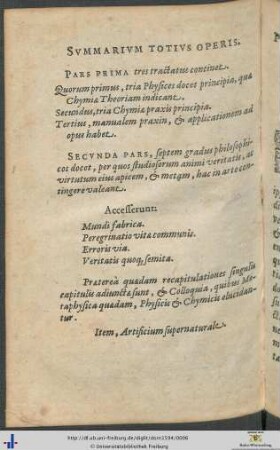 SVMMARIVM TOTIVS OPERIS.
PARS PRIMA tres tractatus continet.
Quorum primus, tria Physices docet principia, quæ
Chymiæ Theoriam indicant.
Secundus, tria Chymiæ praxis principia.
Tertius, manualem praxin, & applicationem ad
opus habet.
SECVNDA PARS, septem gradus philosophi-
cos docet, per quos studiosorum animi veritatis, ac
virtutum eius apicem, & metam, hac in arte con-
tingere valeant.
Accesserunt:
Mundi fabrica.
Peregrinatio vitæ communis.
Erroris via.
Veritatis quoq; semita.
Prætereà quædam recapitulationes singulis
capitulis adiunctæ sunt, & Colloquia, quibus Me-
taphysica quædam, Physicis & Chymicis elucidan-
tur.
Item, Artificium supernaturale.
http://dl.ub.uni-freiburg.de/diglit/dorn1594/0006
© Universitätsbibliothek Freiburg